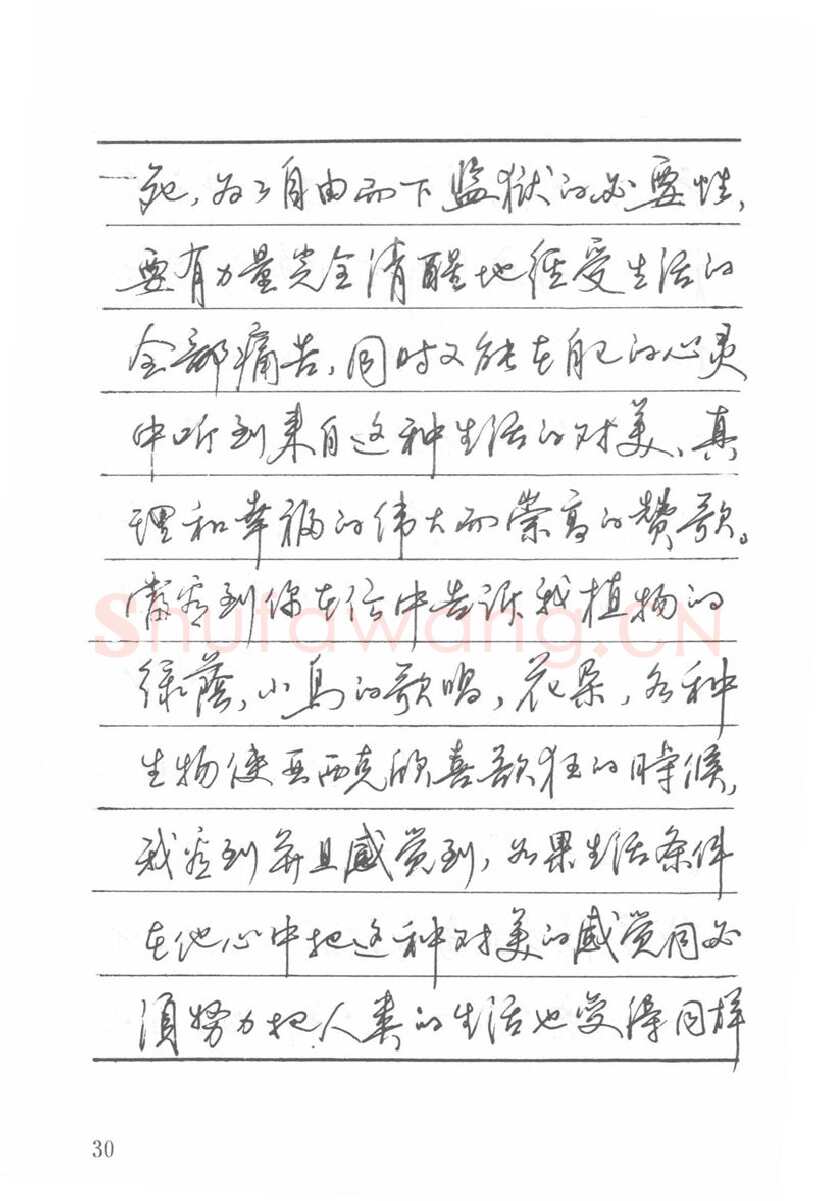 死,为了自由而下监狱的必要性,
要有力量完全清醒地经受生活的
全部痛苦,同时又能在自己的心灵
中听到来自这种生活的对美、真
理和幸福的伟大而崇高的赞歌。
当看到你在信中告诉我植物的
绿荫,小鸟的歌唱,花朵,各种
生物使亚西克欣喜欲狂的時候,
我看到并且感觉到,如果生活条件
在他心中把这种对美的感觉同必
须努力把人类的生活也变得同样
Shufawang.CN
30